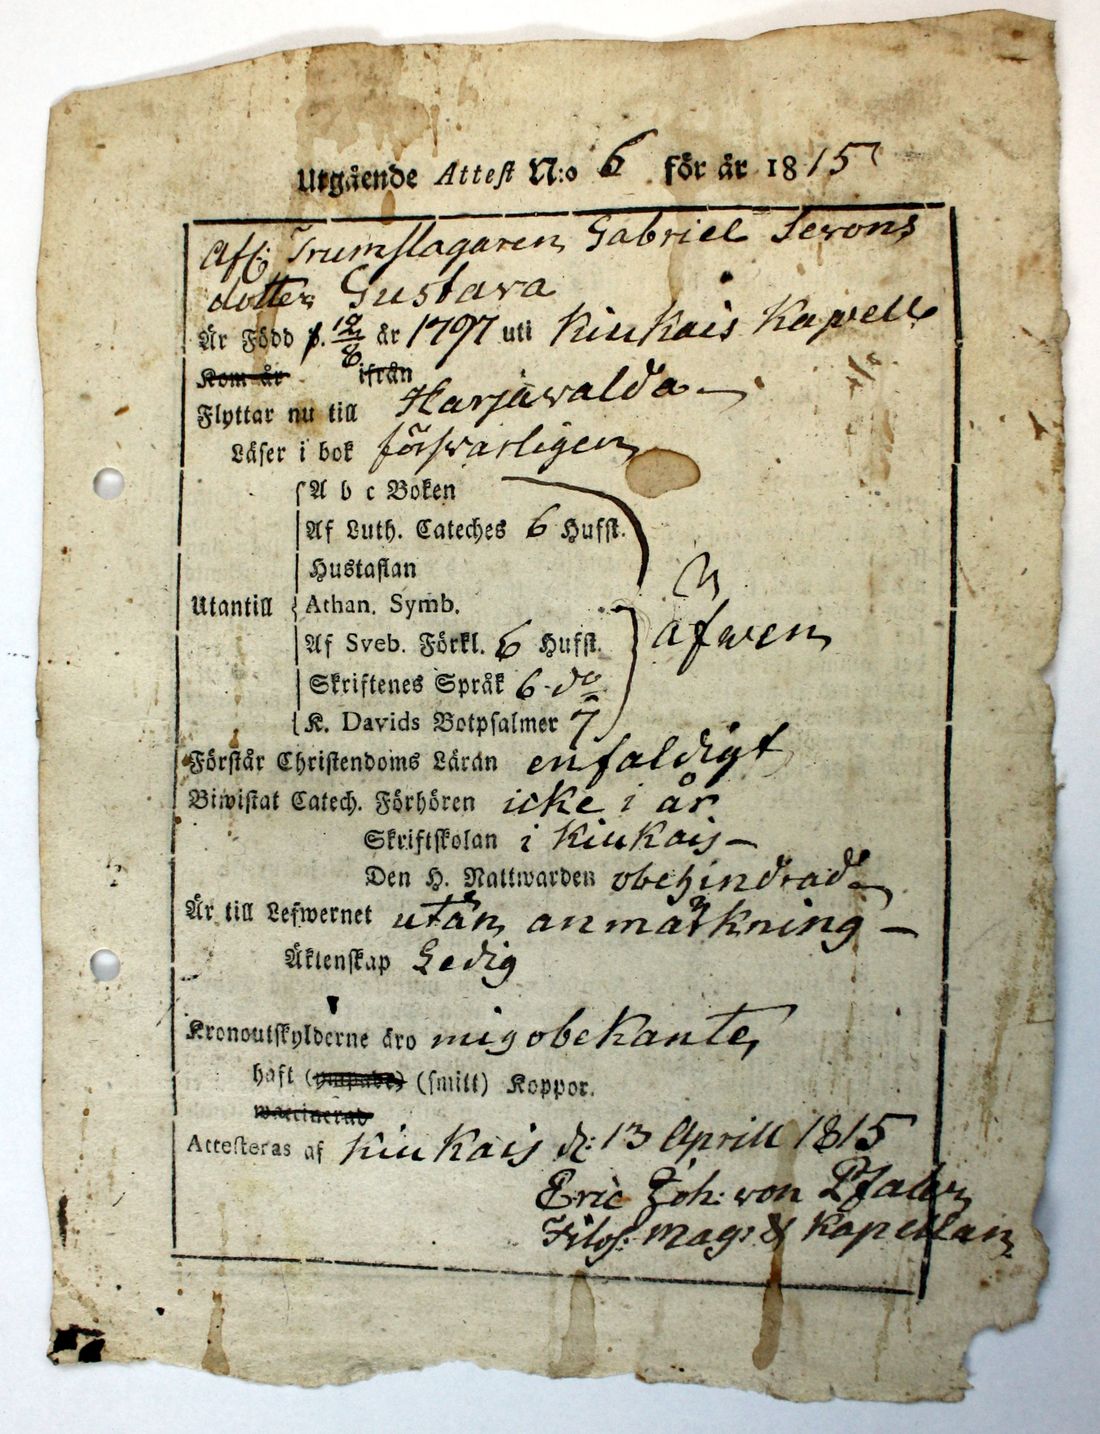 Utgående Attest N:o 6 för år 1815
Afl: Trumslagaren Gabriel Serons
dotter Gustava
Är Född d. 12/8 år 1797 uti Kiukais Kapell
Kom år ifrån
Flyttar nu till Harjawalda
Läser i bok förswarligen
A b c Boken
Af Luth. Cateches 6 Hufst.
Hustaflan
Utantill Athan. Symb.
äfwen
Af Sveb. Förkl. 6 Hufst.
Skriftenes Språk 6 do
K. Davids Botpsalmer 7
Förstår Christendoms Läran enfaldigt
Biwistat Catech. Förhören icke i år
Skriftskolan i Kiukais
Den H. Nattwarden obehindrad
Är till Lefwernet utan anmärkning
Äktenskap Ledig
Kronoutskylderne äro mig obekante
haft (ympade) (smitt) Koppor.
waccinerad
Attesteras af Kiukais d: 13 Aprill 1815
Eric Joh: von Pfaler
Filos: Mag: & Kapellan